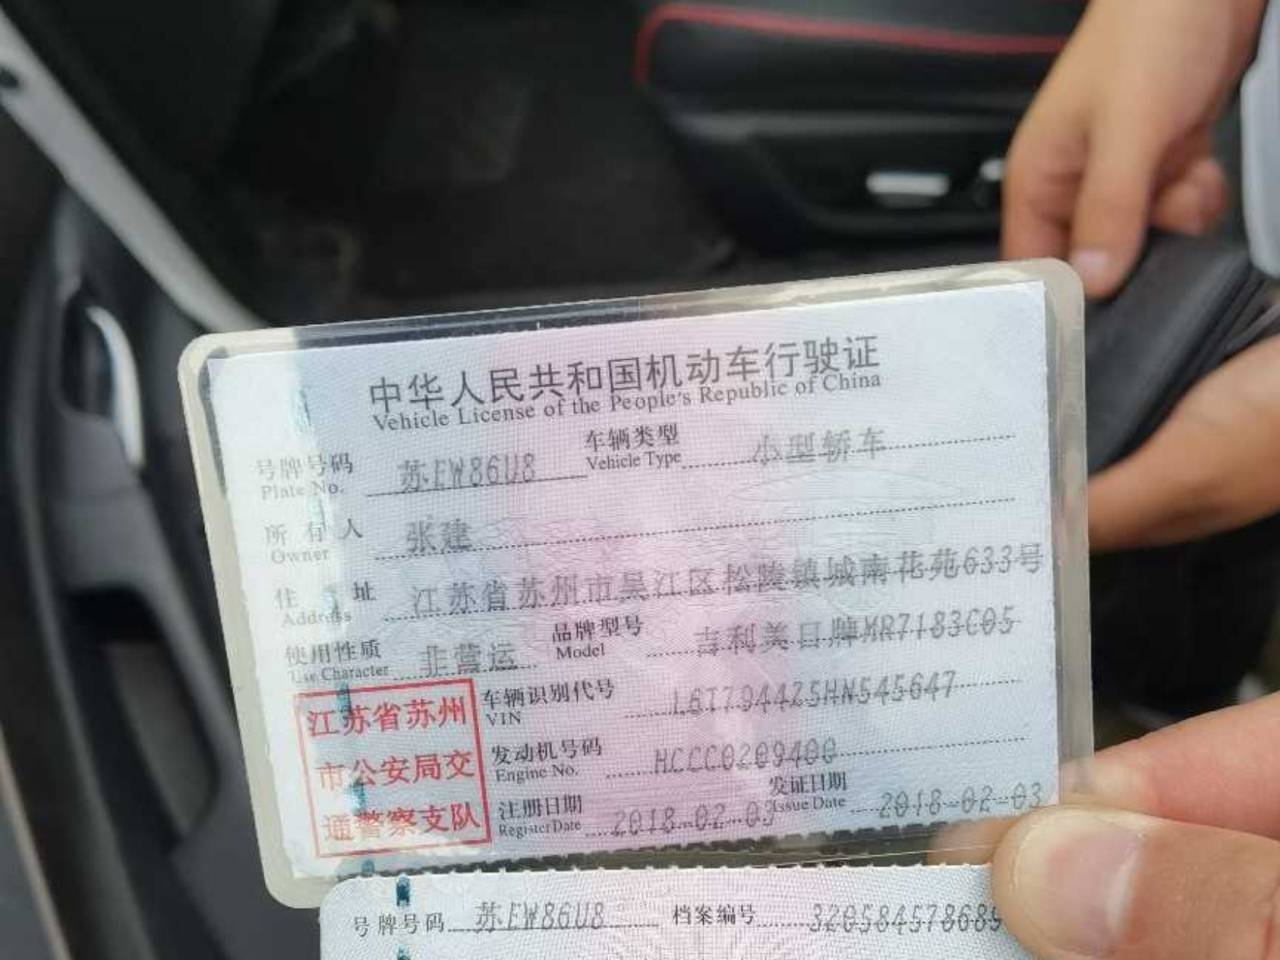 中华人民共和国机动车行驶证
Vehicle License of the People's Republic of China
号牌号码 苏EW86U8 车辆类型 小型轿车
Plate No. Vehicle Type
所有人 张建
Owner
住址 江苏省苏州市吴江区松陵镇城南花苑633号
Address
使用性质 非营运 品牌型号 吉利美日牌MR7183C05
Use Character Model
江苏省苏州
市公安局交
通警察支队
车辆识别代号 L6T7944Z5HN545647
VIN
发动机号码 HCCC0209400
Engine No.
注册日期 2018-02-03 发证日期 2018-02-03
Register Date Issue Date
号牌号码 苏EW86U8 档案编号 320584578689